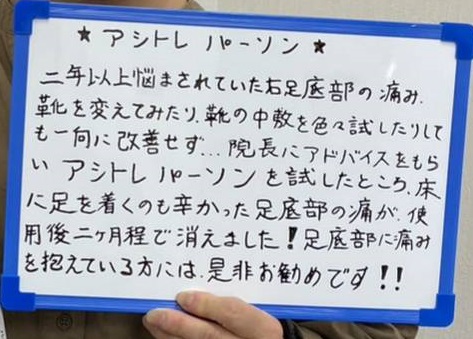 ★ アシトレ パーソン ★
二年以上悩まされていた右足底部の痛み.
靴を変えてみたり、靴の中敷を色々試したりして
も一向に改善せず…院長にアドバイスをもら
い アシトレ パーソンを試したところ、床
に足を着くのも辛かった足底部の痛が、使
用後二ヶ月程で消えました！足底部に痛み
を抱えている方には、是非お勧めです!!